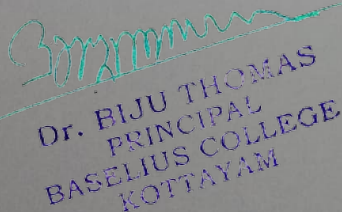 Dr. BIJU THOMAS
PRINCIPAL
BASELIUS COLLEGE
KOTTAYAM